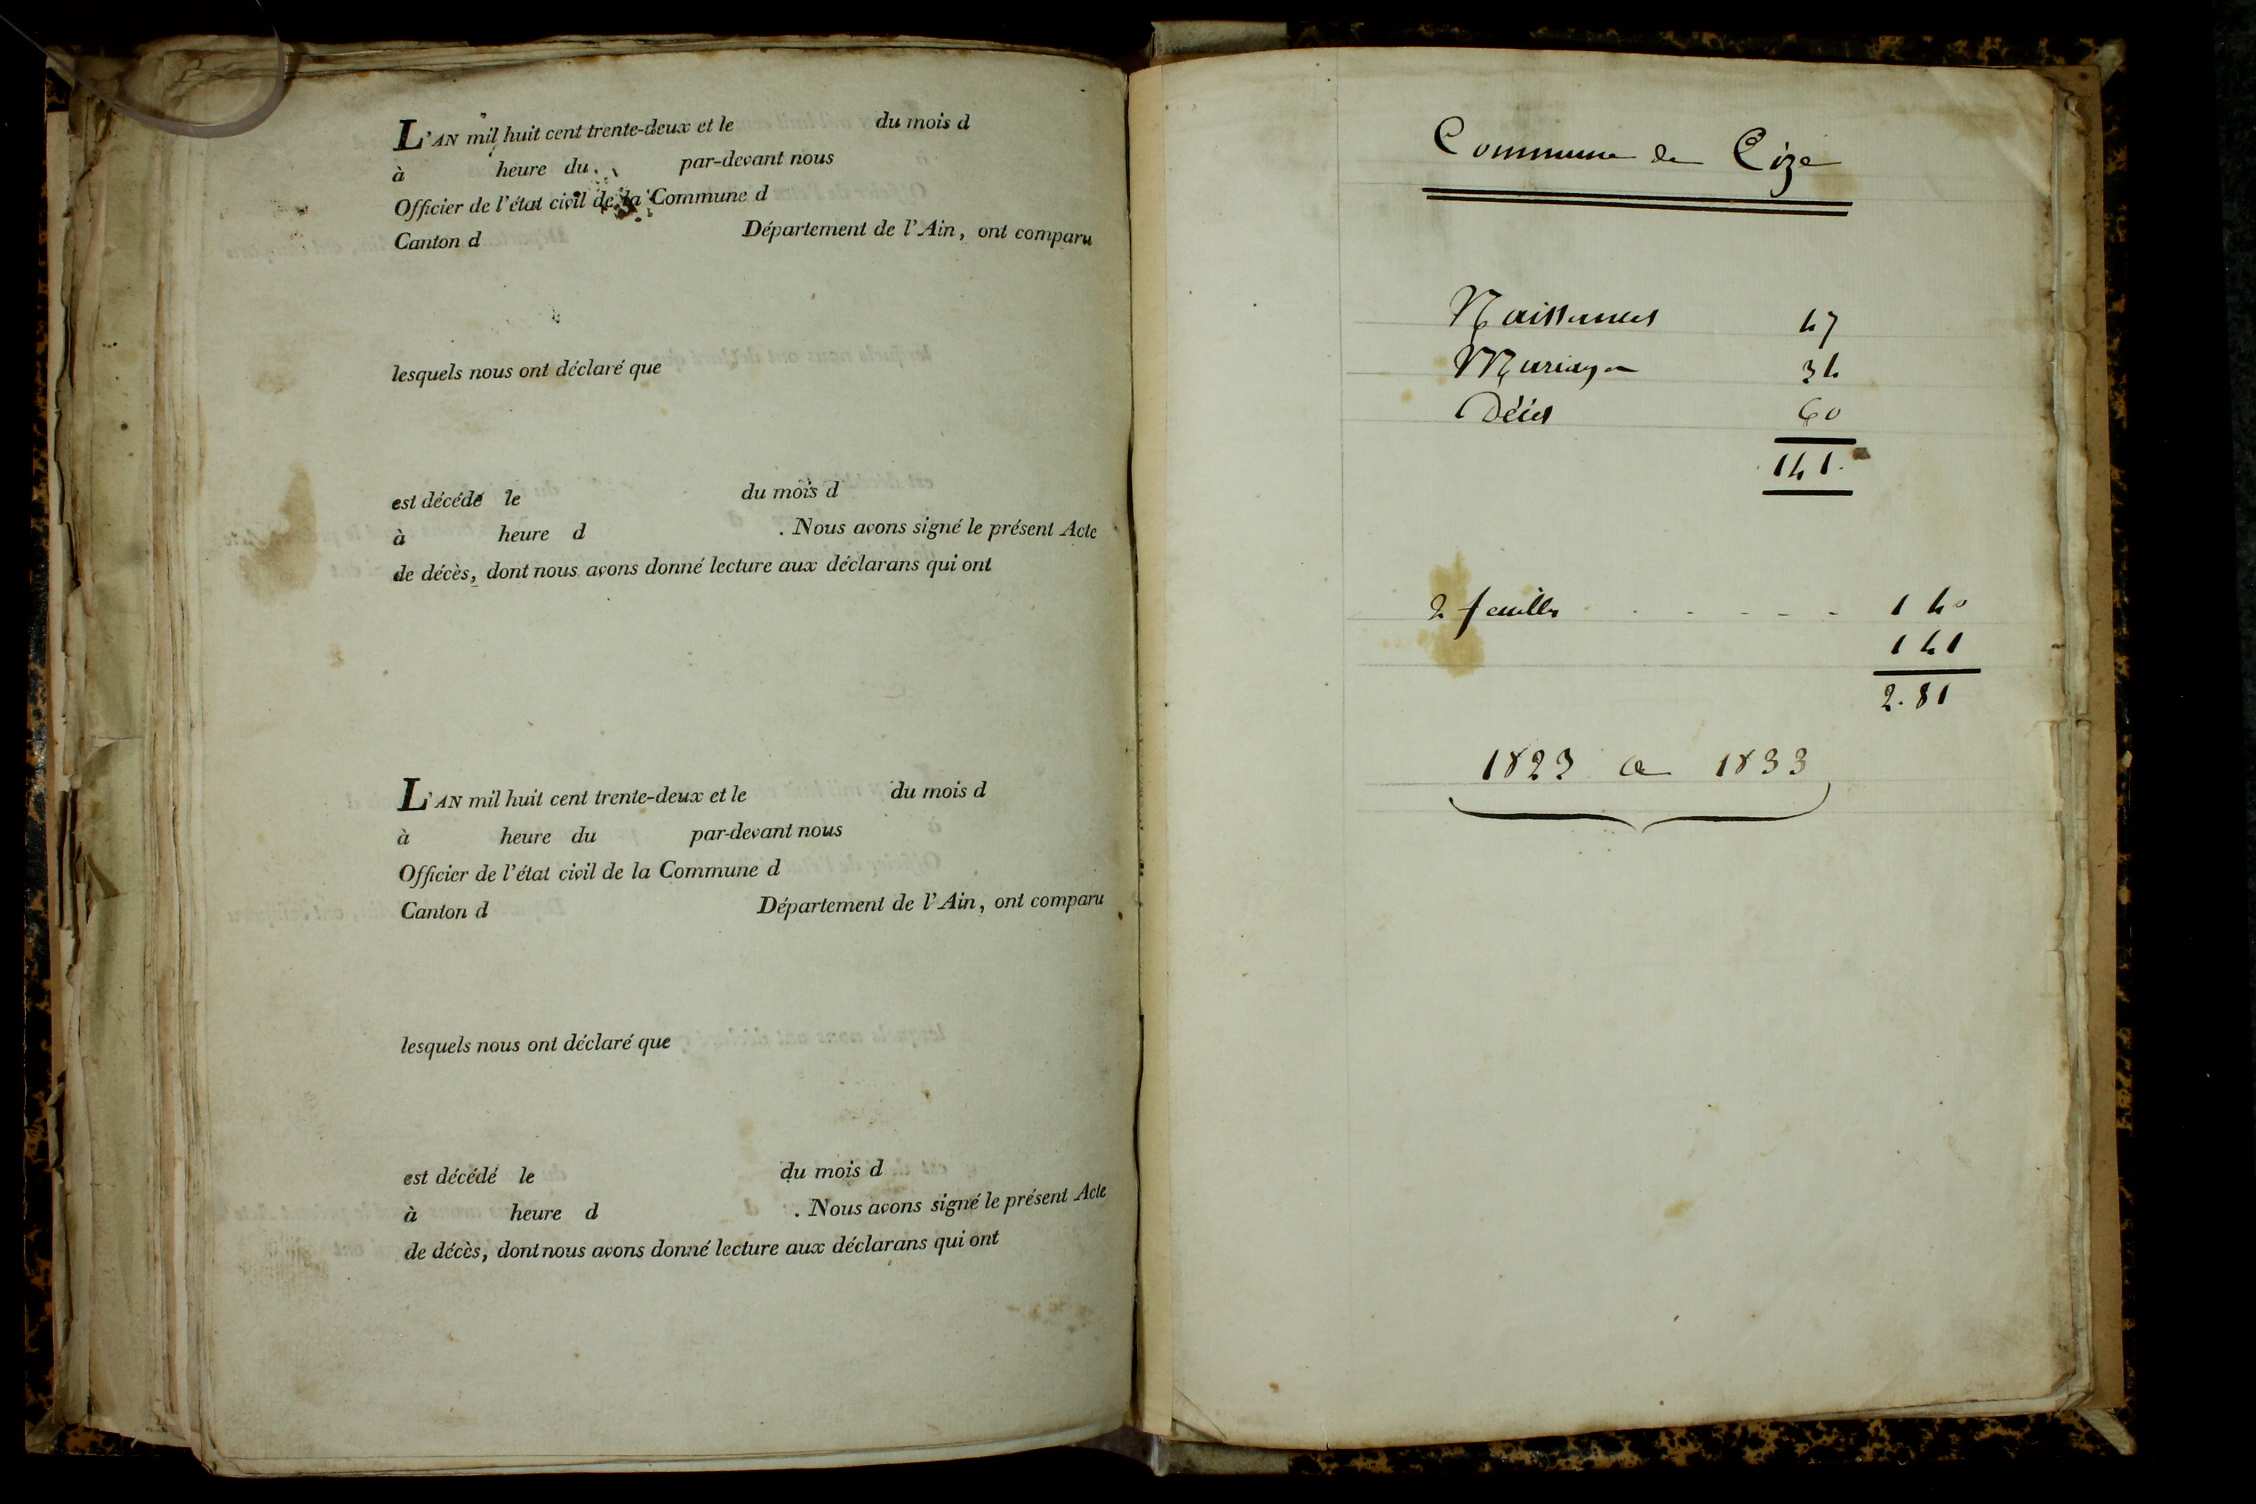 L'AN mil huit cent trente-deux et le du mois d
à heure du par-devant nous
Officier de l'état civil de la Commune d
Canton d Département de l'Ain, ont comparu
lesquels nous ont déclaré que
est décédé le du mois d
à heure d . Nous avons signé le présent Acte
de décès, dont nous avons donné lecture aux déclarans qui ont
L'AN mil huit cent trente-deux et le du mois d
à heure du par-devant nous
Officier de l'état civil de la Commune d
Canton d Département de l'Ain, ont comparu
lesquels nous ont déclaré que
est décédé le du mois d
à heure d . Nous avons signé le présent Acte
de décès, dont nous avons donné lecture aux déclarans qui ont
Commune de Cize
Naissances 47
Mariages 34
Décès 60
141.
2 feuilles . . - - - - 1 40
1 41
2.81
1823 a 1833